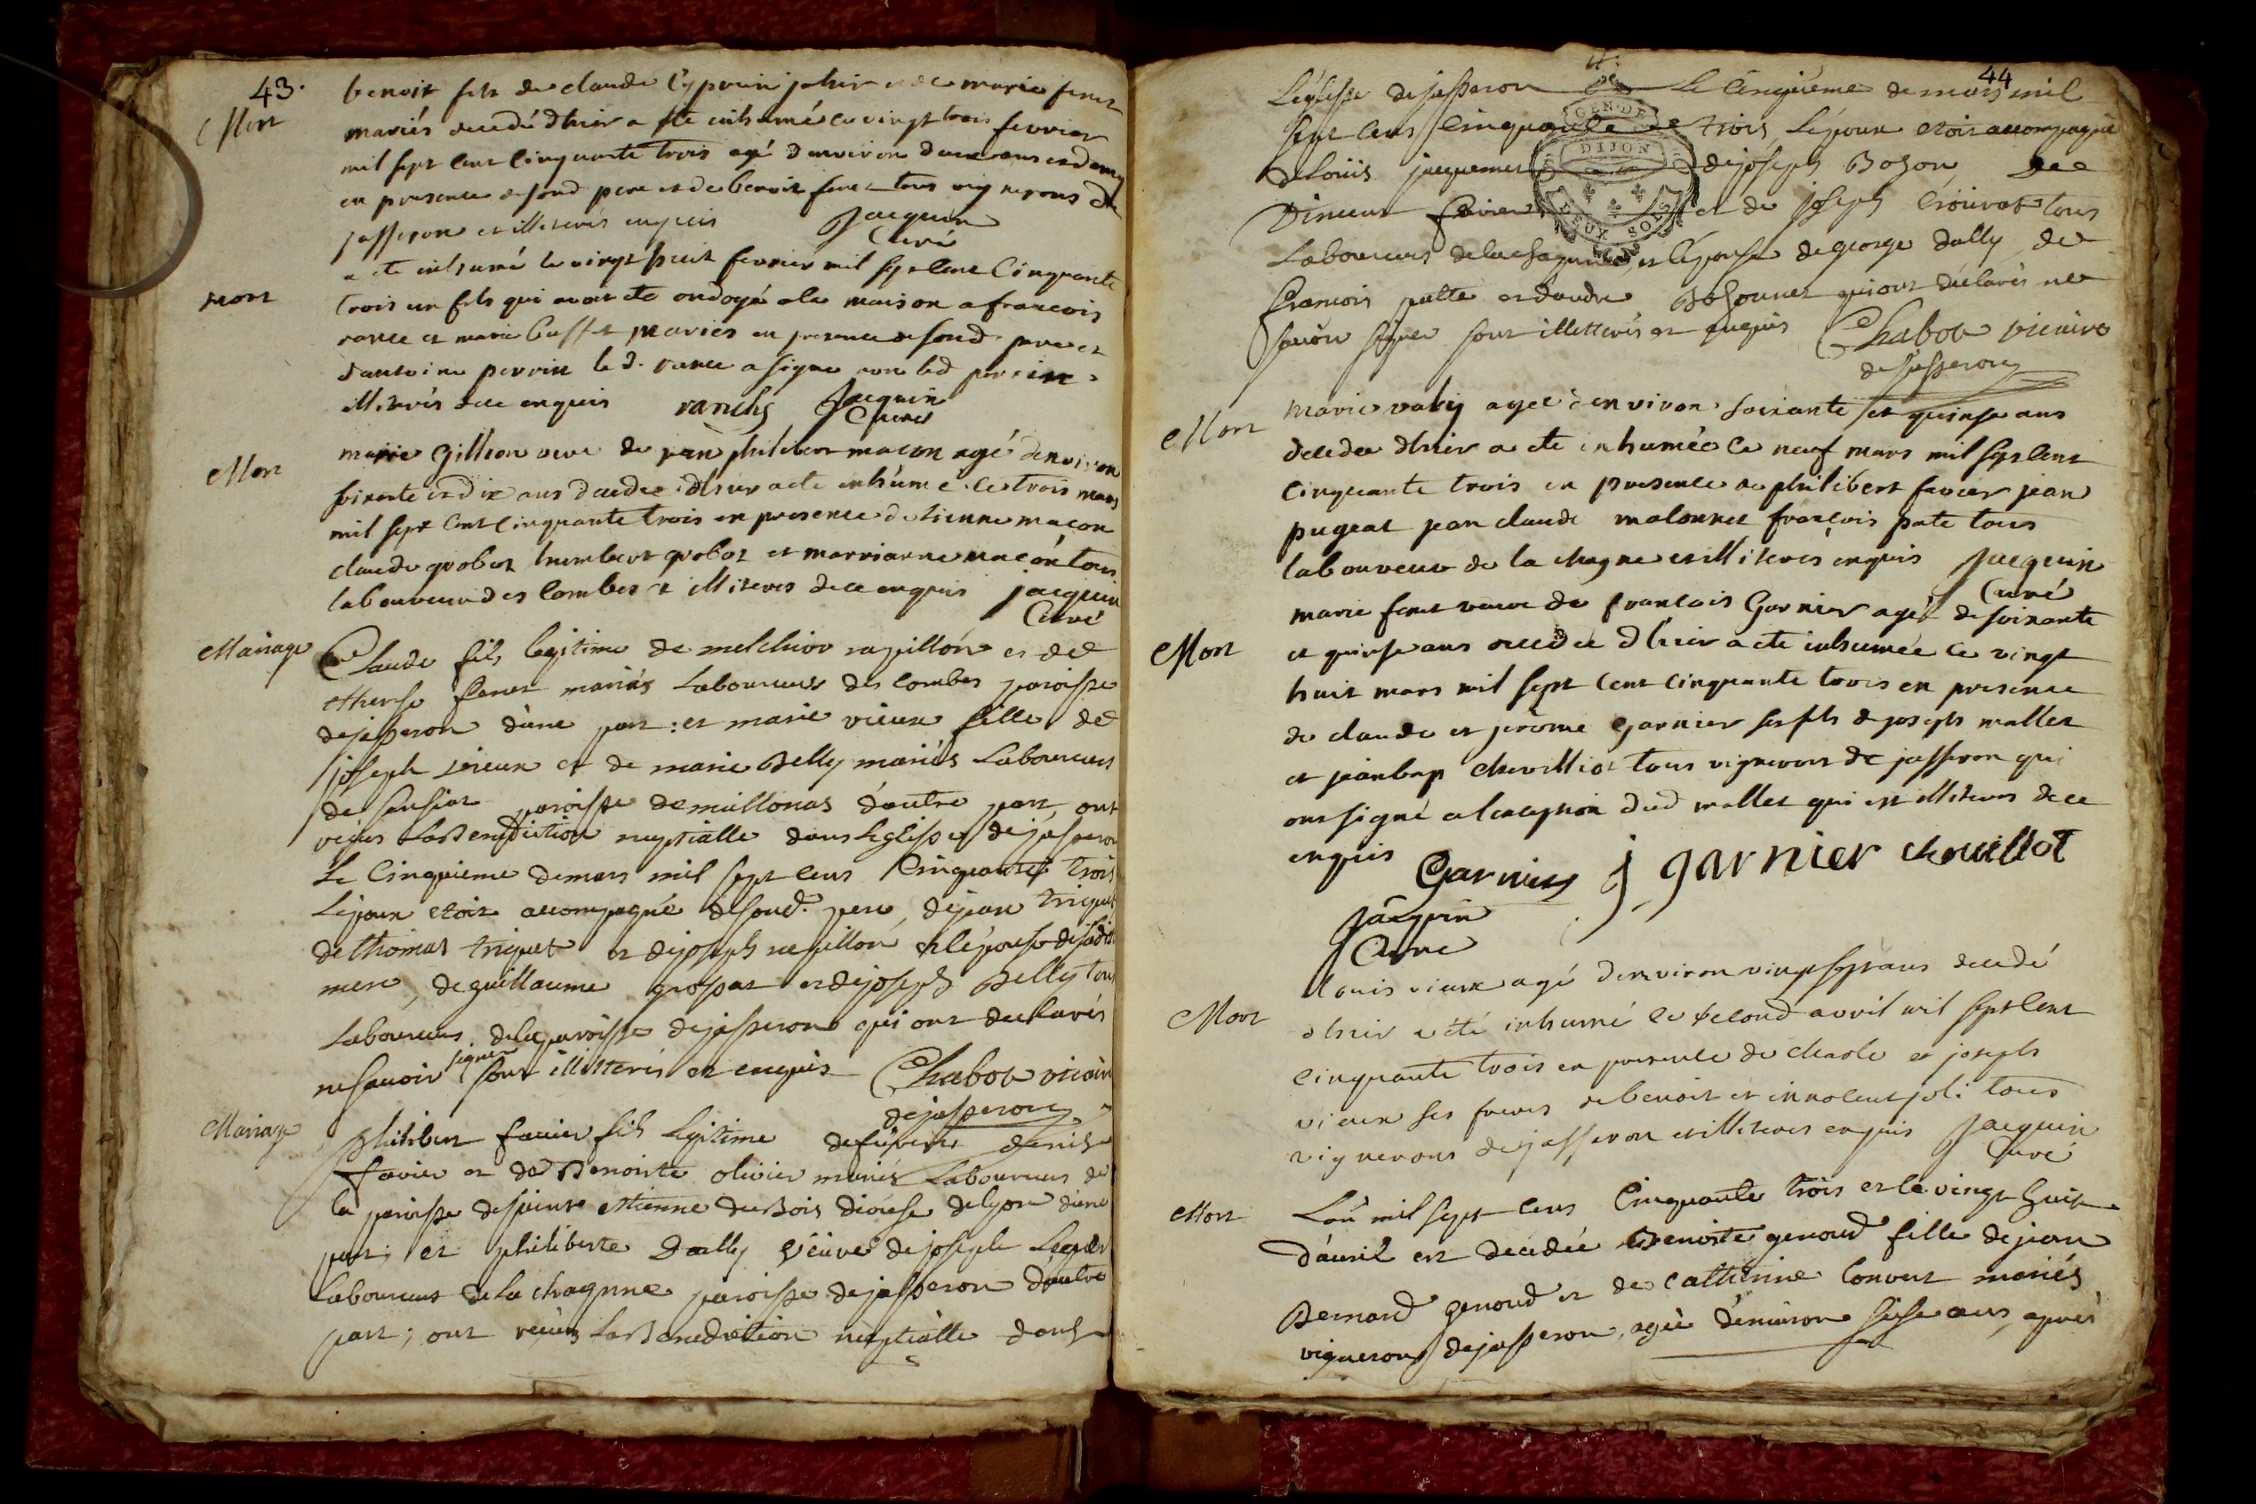 43.
Mort
benoit fils de claude Cyprien et de marie feret
mariés decedé dhier a été inhumé ce vingt trois fevrier
mil sept cent cinquante trois agé d'environ deux ans et demy
en presence de sond pere et de benoit feret tous vignerons de
jasseron et illiterés enquis Jacquin
Curé
Mort
a été inhumé le vingt huit fevrier mil sept cent cinquante
trois un fils qui avoit été ondoyé a la maison a francois
rance et marie buffet mariés en presence de sond pere et
d'antoine perrin le d. rance a signé non led perrin
illiterés de ce enquis Jacquin
Curé
Mort
marie Gillion veve de jean philibert macon agé d'environ
soixante et dix ans decedee dhier a été inhumé ce trois mars
mil sept cent cinquante trois en presence d'etienne macon
claude grobot humbert grobot et marrianne macon tous
laboureur des Combes et illiterés de ce enquis jacquin
Curé
Mariage
Claude fils legitime de melchior rapillon et de
therese feret mariés Laboureurs des combes paroisse
de jasseron d'une part: et marie vieux fille de
joseph vieux et de marie Belly mariés Laboureurs
de sansiat paroisse de meillonas d'autre part ont
reçus La Benediction nuptialle dans L'eglise de jasseron
Le Cinquieme de mars mil sept cens Cinquante trois
L'epoux etoit accompagné de soud. pere, de jean triquet
de thomas triquet et de joseph rapillon et l'épouse de sadite
mere, de guillaume grospas et de joseph Belly tous
Laboureurs de la paroisse de jasseron qui ont declarés
ne savoir signer sont illitterés et enquis Chabot vicaire
de jasseron
Mariage
Philibert favier fils Legitime de Denis
favier et de Benoite olivier mariés Laboureurs de
la paroisse de saint etienne du Bois diocese de lyon d'une
part; et philiberte Dally veuve de joseph
Laboureurs de La chagnne paroisse de jasseron d'autre
part; ont reçus La Benediction nuptialle dans
44
L'eglise de jasseron Le Cinquiéme de mars mil
sept cens Cinquante et trois L'epoux etoit accompagné
de Louis jacquemet de joseph Bozon de
Vincent favier et de joseph tous
Laboureurs de la chagnne, et L'epouse de george dally de
francois patte et claude qui ont déclarés ne
savoir signer sont illitterés et enquis Chabot vicaire
de jasseron
GEN DE
DIJON
DEUX SOLS
Mort
Marie agee d'environ soixante et quinse ans
decedee dhier a été inhumée le neuf mars mil sept cent
cinquante trois en presence de philibert favier jean
pugeat jean claude malonnet françois pate tous
laboureur de la chagne et illiterés enquis Jacquin
Curé
Mort
marie feret veuve de francois Garnier agée de soixante
et quinse ans decedée d'hier a été inhumée ce vingt
huit mars mil sept cent cinquante trois en presence
de claude et jerome garnier ses fils de joseph mallet
et jeanbap chevillot tous vignerons de jasseron qui
ont signé a l'exception dud mallet qui est illiterés de ce
enquis Garnier j garnier chevillot
Jacquin
Curé
Mort
Louis vieux agé d'environ vingt sept ans decedé
dhier a été inhumé le second avvril mil sept cent
cinquante trois en presence de charle et joseph
vieux ses freres de benoit et innocent joli tous
vignerons de jasseron et illiterés enquis Jacquin
Curé
Mort
L'an mil sept cens Cinquante trois et le vingt huit
d'avril est decedée Benoite genoud fille de jean
Bernard genoud et de Catherine Convert mariés
vignerons de jasseron, agée d'environ seise ans, après